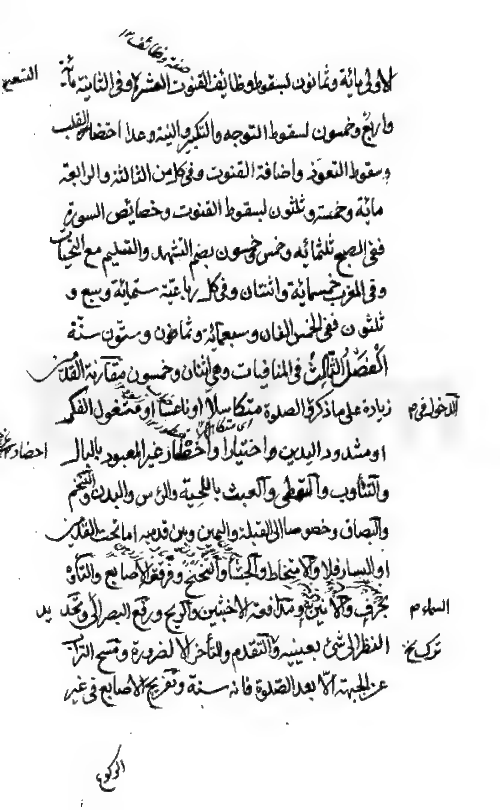 صفة وظائف
الاولى مائة وثمانون لسقوط وظائف القنوت العشرة وفى الثانية مائة
واربع وخمسون لسقوط التوجه والتكبير والنية وعدا احضار القلب
وسقوط التعوذ واضافة القنوت وفى كل من الثالثة والرابعة
مائة وخمسة وثلثون لسقوط القنوت وخصائص السورة
ففى الصبح ثلثمائة وخمس وخمسون بضم التشهد والتسليم مع التحيات
وفى المغرب خمسمائة واثنتان وفى كل رباعية ستمائة وسبع و
ثلثون ففى الخمس الفان وسبعمائة وثمانون وستون سنة
الفصل الثالث فى المنافيات وهى اثنان وخمسون مقارنة القدمين
زيادة على ما ذكر فى الصلوة متكاسلا او ناعسا او مشغول الفكر
الدخول فى
او مشدود اليدين واختيارا واخطار غير المعبود بالبال
احضار
والتثاوب والتمطى والعبث باللحية والراس والبدن والتنخم
والبصاق وخصوصا الى القبلة واليمين وبين يديه اما تحت القدمين
او اليسار فلا والامتخاط والجشاء والتنحنح وفرقعة الاصابع والتأوه
بحرف والانين به ومدافعة الاخبثين والريح ورفع البصر الى وتحديد
السماء
النظر الى شئ بعينه والتقدم والتأخر الا لضرورة ومسح التراب
عن الجبهة الا بعد الصلوة فانه سنة وتفريج الاصابع فى غير
الركوع